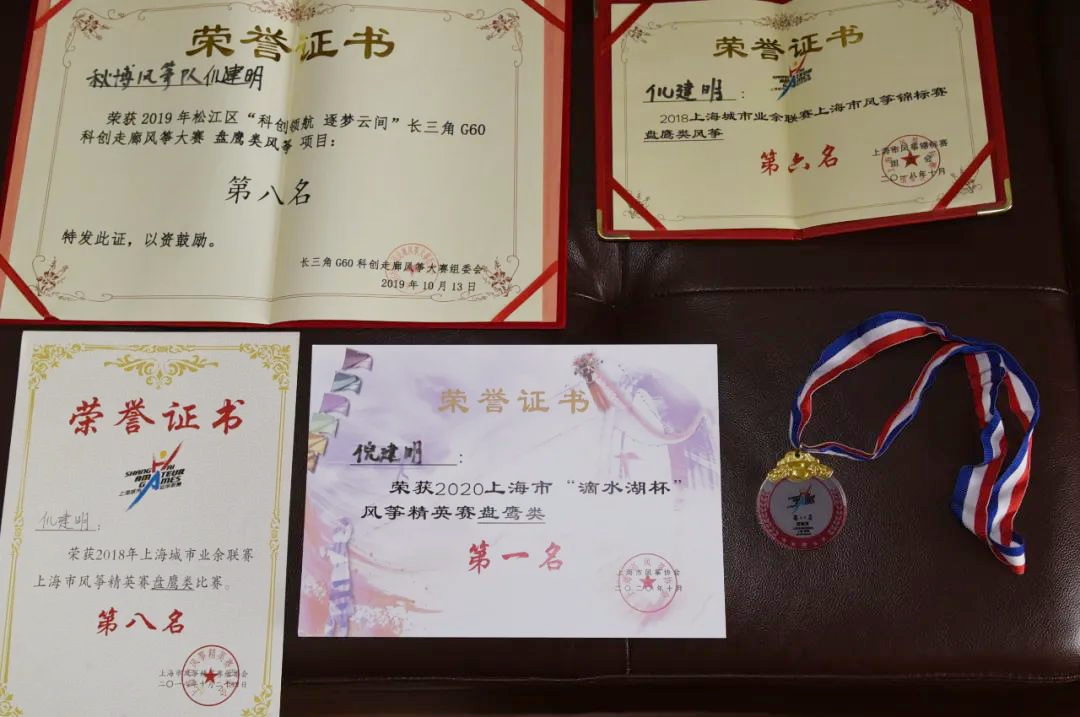 荣誉证书
秋博风筝队仉建明
荣获2019年松江区“科创领航 逐梦云间”长三角G60
科创走廊风筝大赛 盘鹰类风筝 项目：
第八名
特发此证，以资鼓励。
长三角G60科创走廊风筝大赛组委会
2019年10月13日
荣誉证书
仉建明：
2018上海城市业余联赛上海市风筝锦标赛
盘鹰类风筝
第六名
上海市风筝锦标赛
二〇一八年十月
荣誉证书
SHANGHAI
AMATEUR
GAMES
仉建明：
荣获2018年上海城市业余联赛
上海市风筝精英赛盘鹰类比赛。
第八名
荣誉证书
倪建明：
荣获2020上海市“滴水湖杯”
风筝精英赛盘鹰类
第一名
上海市风筝协会
二〇二〇年十月